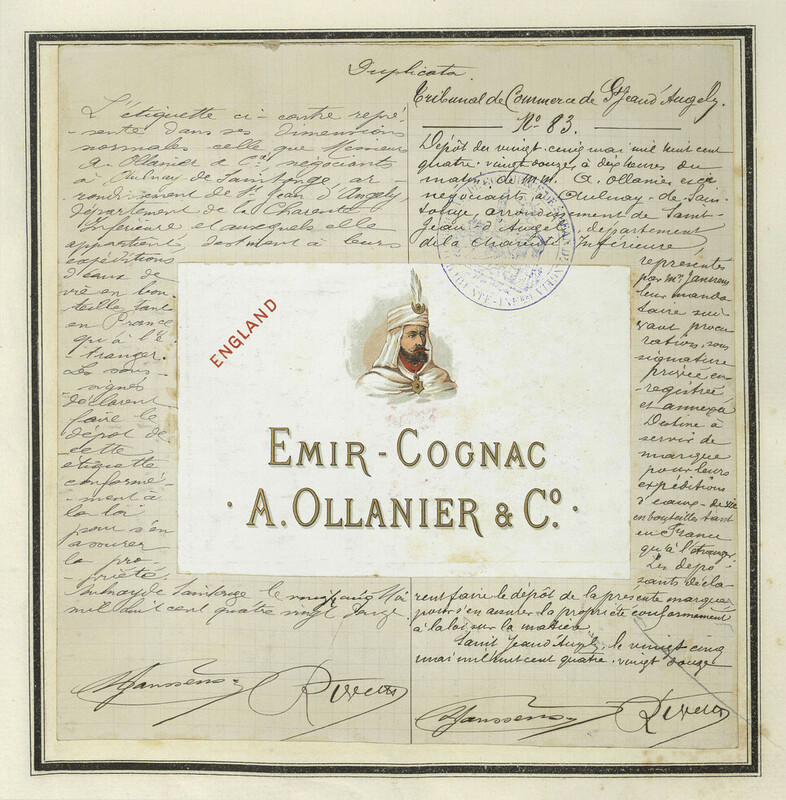 Duplicata
L'étiquette ci-contre repré-
-sente dans ses dimensions
normales celle que Messieurs
A. Ollanier & Cie négociants
à Aulnay de Saintonge ar-
-rondissement de St Jean d'Angely
département de la Charente
Inférieure et auxquels elle
appartient, destinent à leurs
expéditions
d'eaux de
vie en bou-
teille tant
en France
qu'à l'é-
tranger.
Les sous-
signés
déclarent
faire le
dépôt de
cette
étiquette
conformé-
-ment à
la loi
pour s'en
assurer
la pro-
priété.
Aulnay de Saintonge le vingt cinq Mai
mil huit cent quatre vingt douze.
Janssens
Tribunal de Commerce de St Jean d'Angely.
No 83.
Dépôt du vingt-cinq mai mil huit cent
quatre-vingt douze à dix heures du
matin de M.M. A. Ollanier & Cie
négociants à Aulnay-de-Sain-
tonge, arrondissement de Saint-
Jean d'Angely, département
de la Charente Inférieure,
représentés
par Mr Janssens
leur manda-
taire sui-
vant procu-
ration sous
signature
privée en-
-registrée
et annexée
Destine à
servir de
marque
pour leurs
expéditions
d'eaux-de-vie
en bouteilles tant
en France
qu'à l'étranger.
Les dépo-
sants décla-
rent faire le dépôt de la présente marque
pour s'en assurer la propriété conformément
à la loi sur la matière.
Saint Jean d'Angely, le vingt cinq
mai mil huit cent quatre-vingt douze
Janssens
ENGLAND
EMIR-COGNAC
· A. OLLANIER & Co. ·